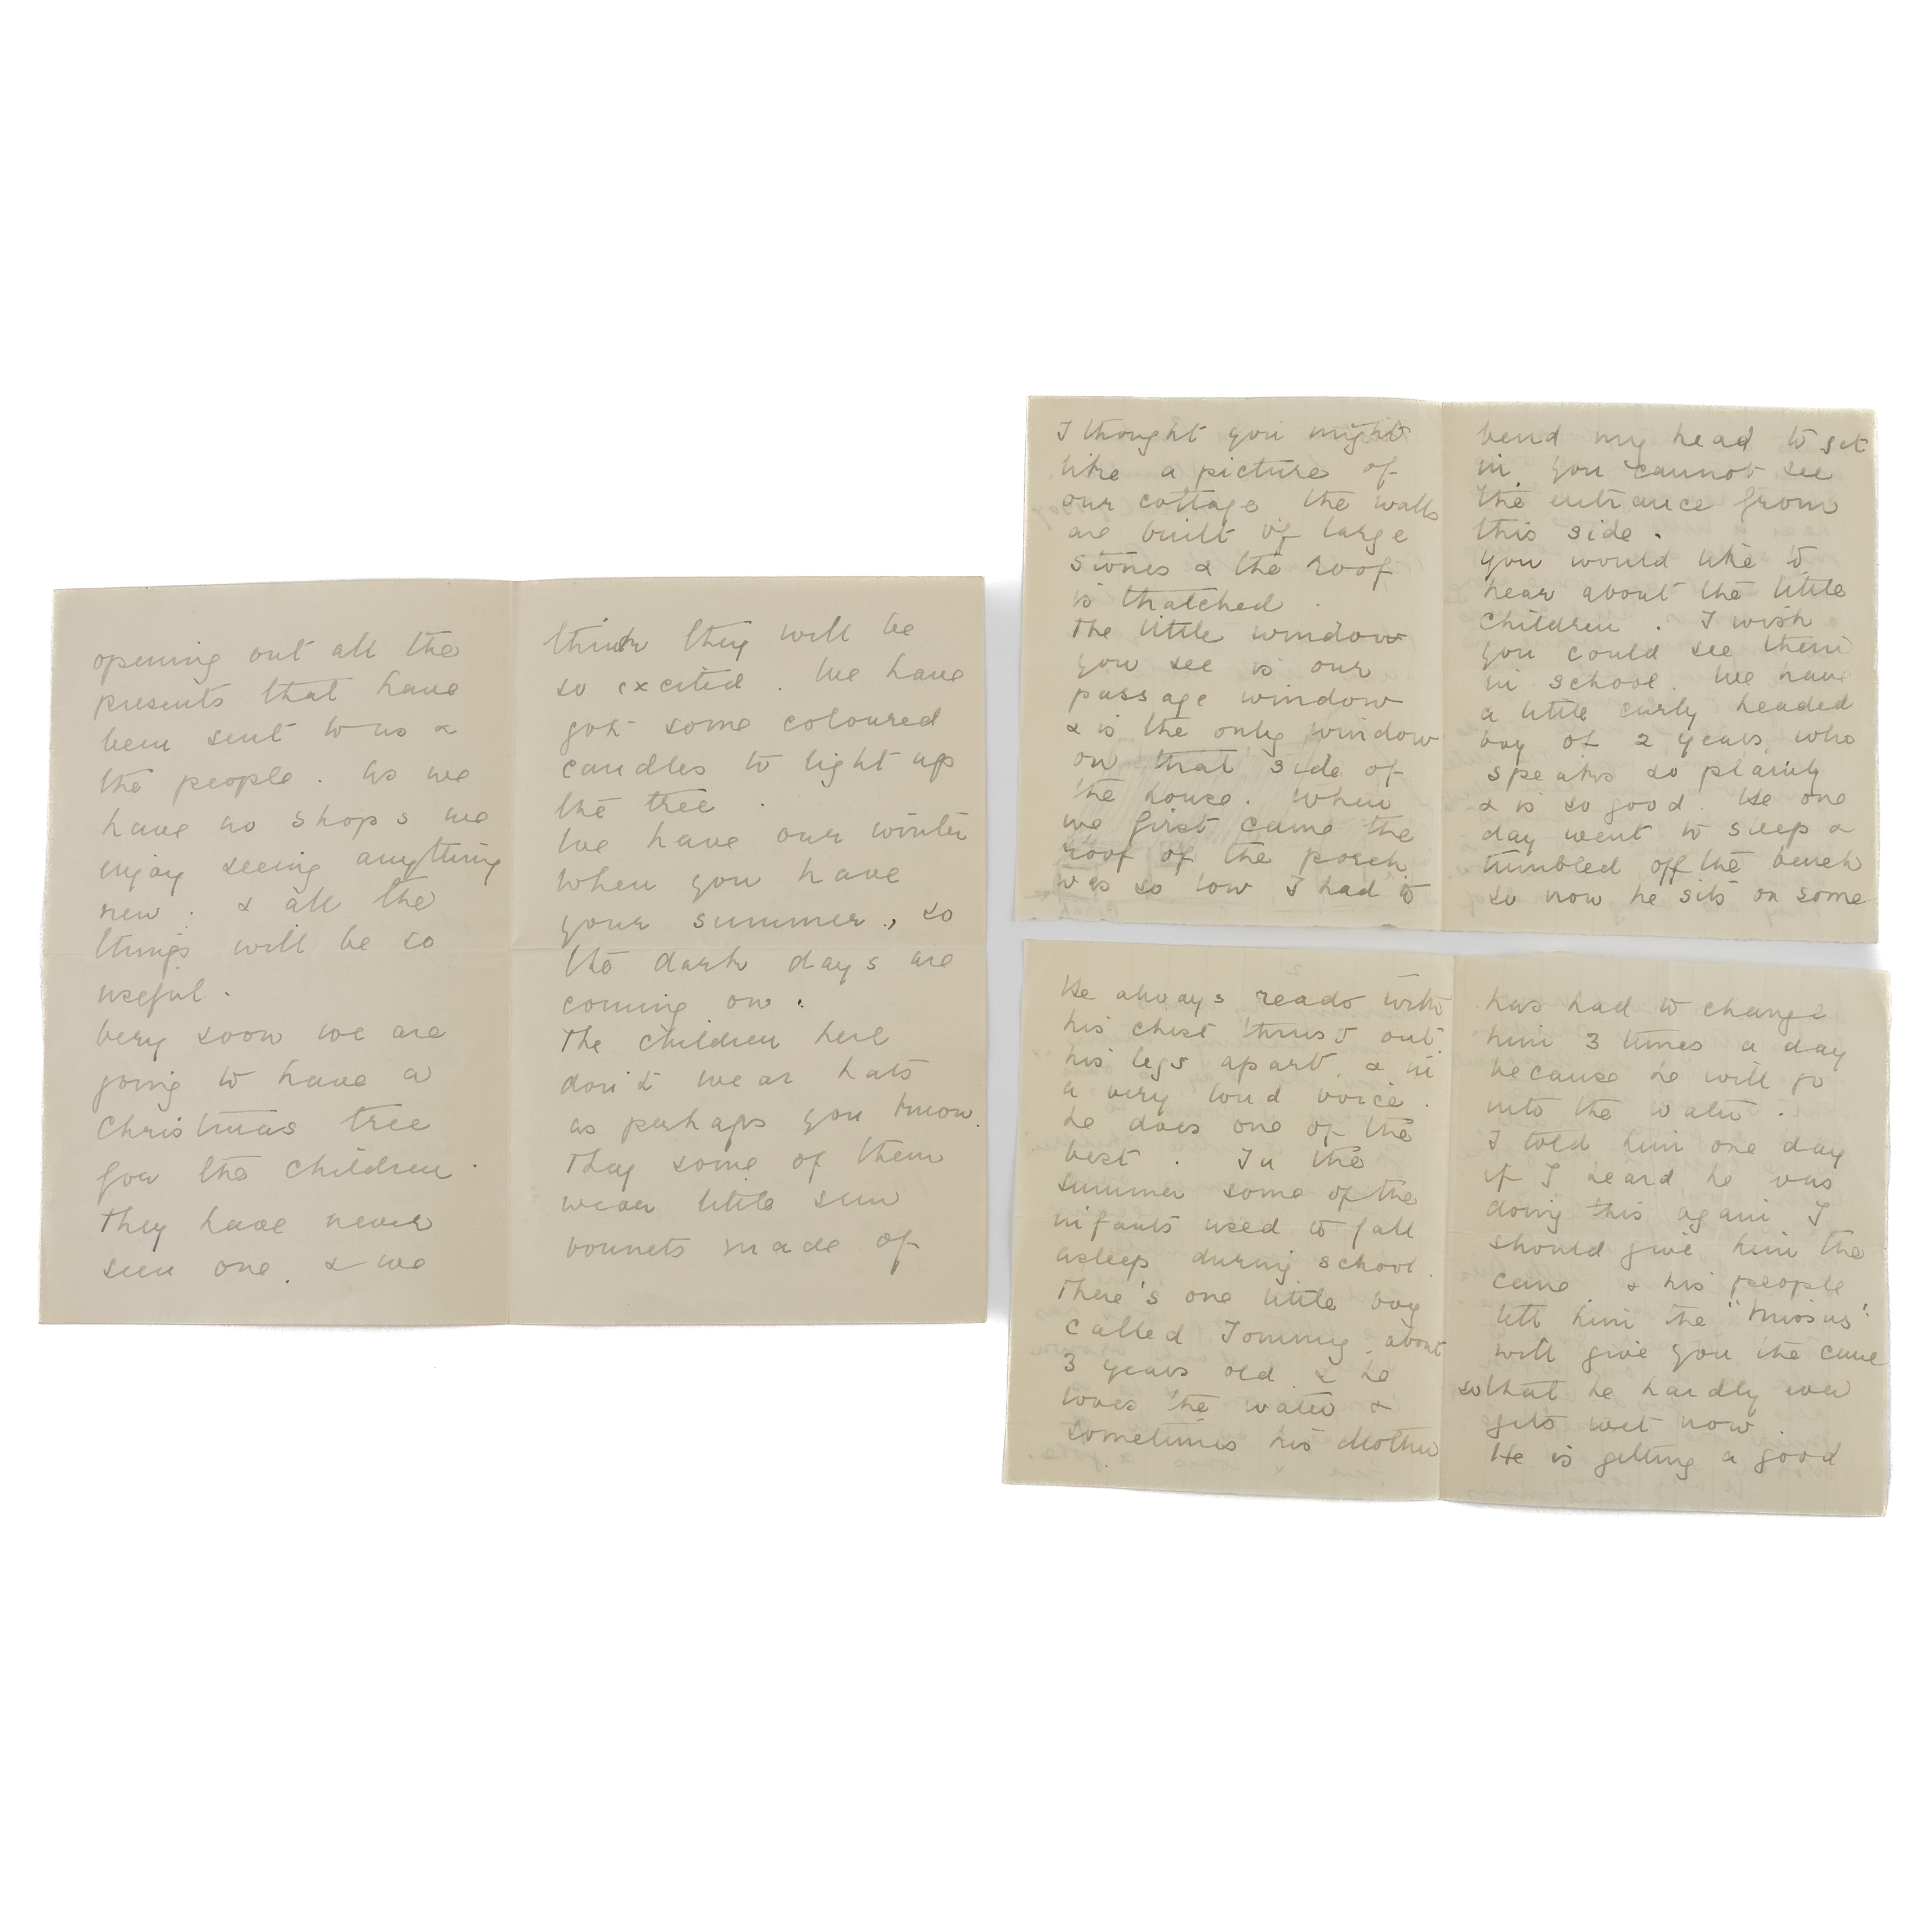 opening out all the
presents that have
been sent to us &
the people. As we
have no shops we
enjoy seeing anything
new. & all the
things will be so
useful.
Very soon we are
going to have a
Christmas tree
for the children.
They have never
seen one. & we
think they will be
so excited. We have
got some coloured
candles to light up
the tree.
We have our winter
when you have
your summer, so
the dark days are
coming on.
The children here
don't wear hats
as perhaps you know.
They some of them
wear little sun
bonnets made of
I thought you might
like a picture of
our cottage the walls
are built of large
stones & the roof
is thatched.
The little window
you see is our
passage window
& is the only window
on that side of
the house. When
we first came the
roof of the porch
was so low I had to
bend my head to get
in. you cannot see
the entrance from
this side.
You would like to
hear about the little
children. I wish
you could see them
in school. We have
a little curly headed
boy of 2 years, who
speaks so plainly
& is so good. He one
day went to sleep &
tumbled off the bench
so now he sits on some
He always reads with
his chest thrust out
his legs apart, & in
a very loud voice.
he does one of the
best. In the
summer some of the
infants used to fall
asleep during school.
There's one little boy
called Tommy about
3 years old & he
loves the water &
sometimes his Mother
has had to change
him 3 times a day
because he will go
into the water.
I told him one day
if I heard he was
doing this again I
should give him the
cane & his people
tell him the "Missus"
will give you the cane
so that he hardly ever
gets wet now.
He is getting a good